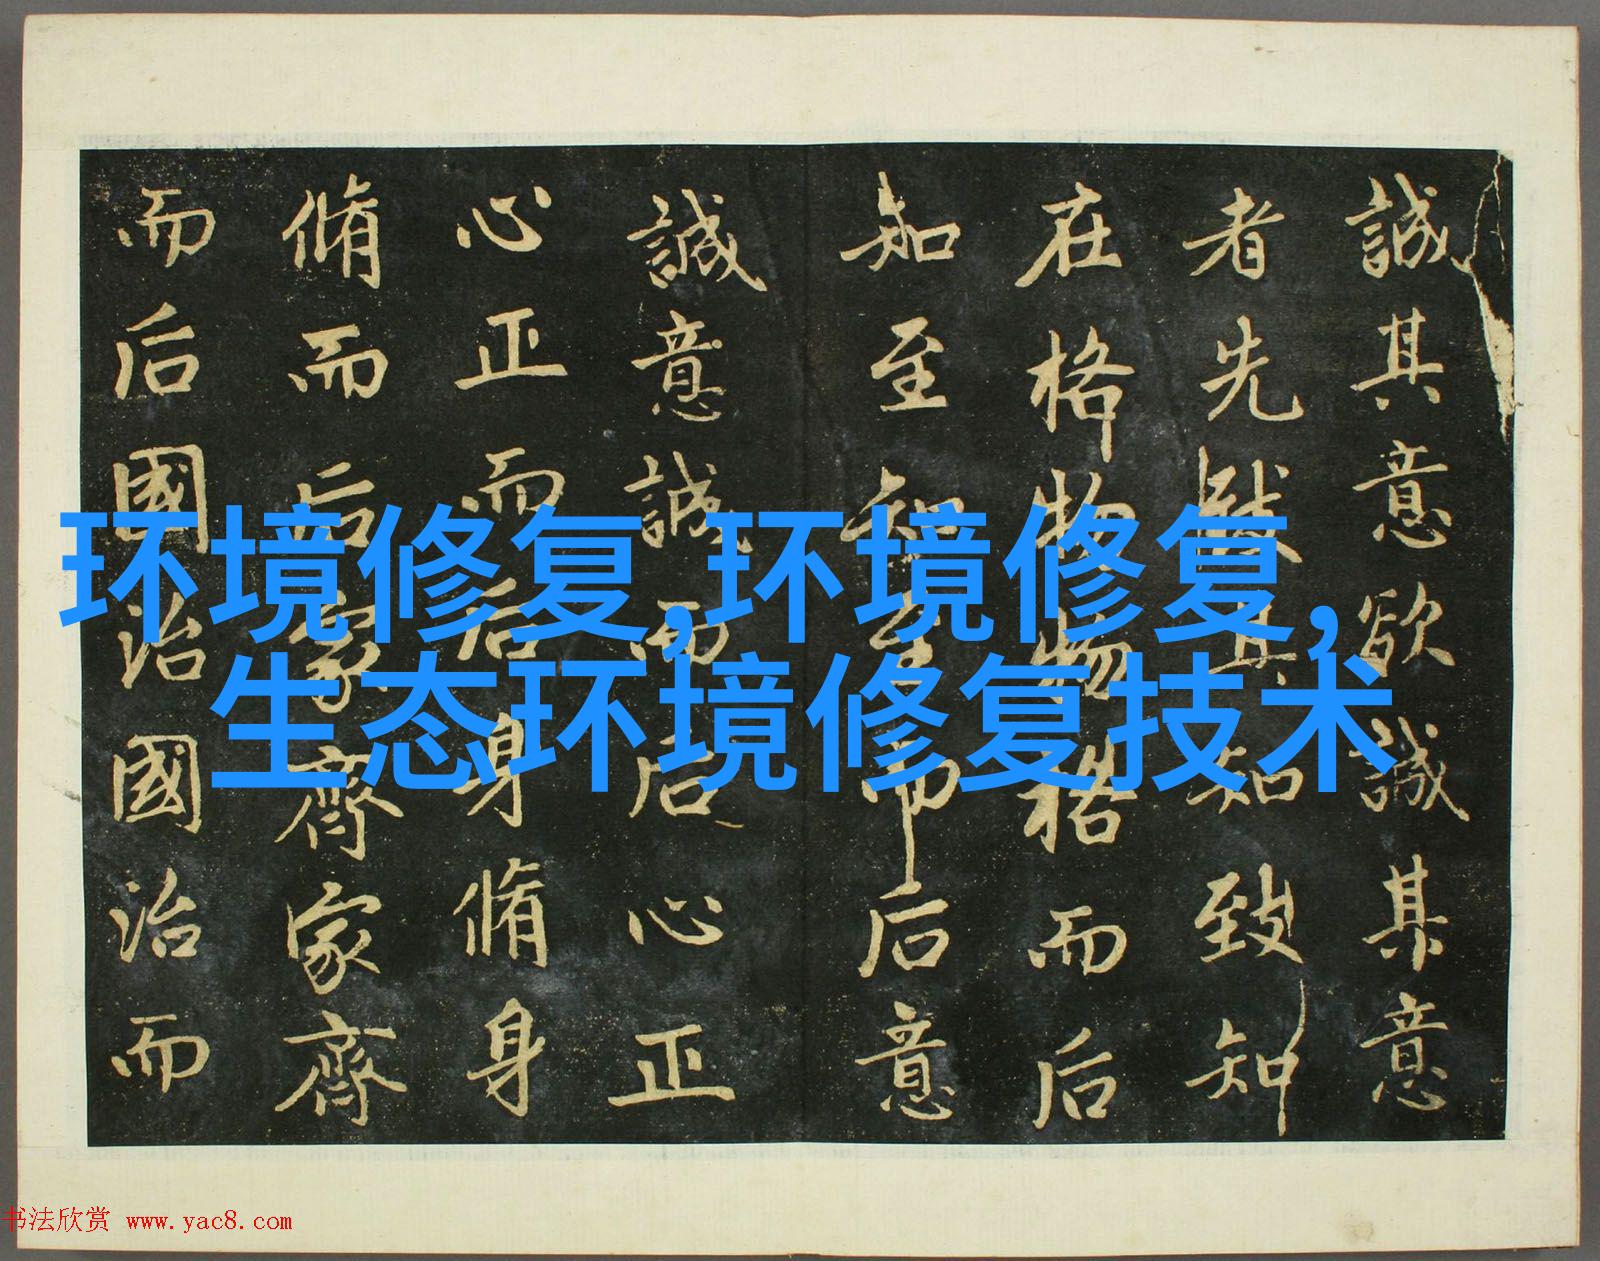 誠其意欲誠其意
者先致其知致知
在格物物格而后
知至知至而后意
誠意誠而后心正
心正而后身脩身
脩而后家齊家齊
而后國治國治而
环境修复,环境修复,
生态环境修复技术
书法欣赏 www.yac8.com